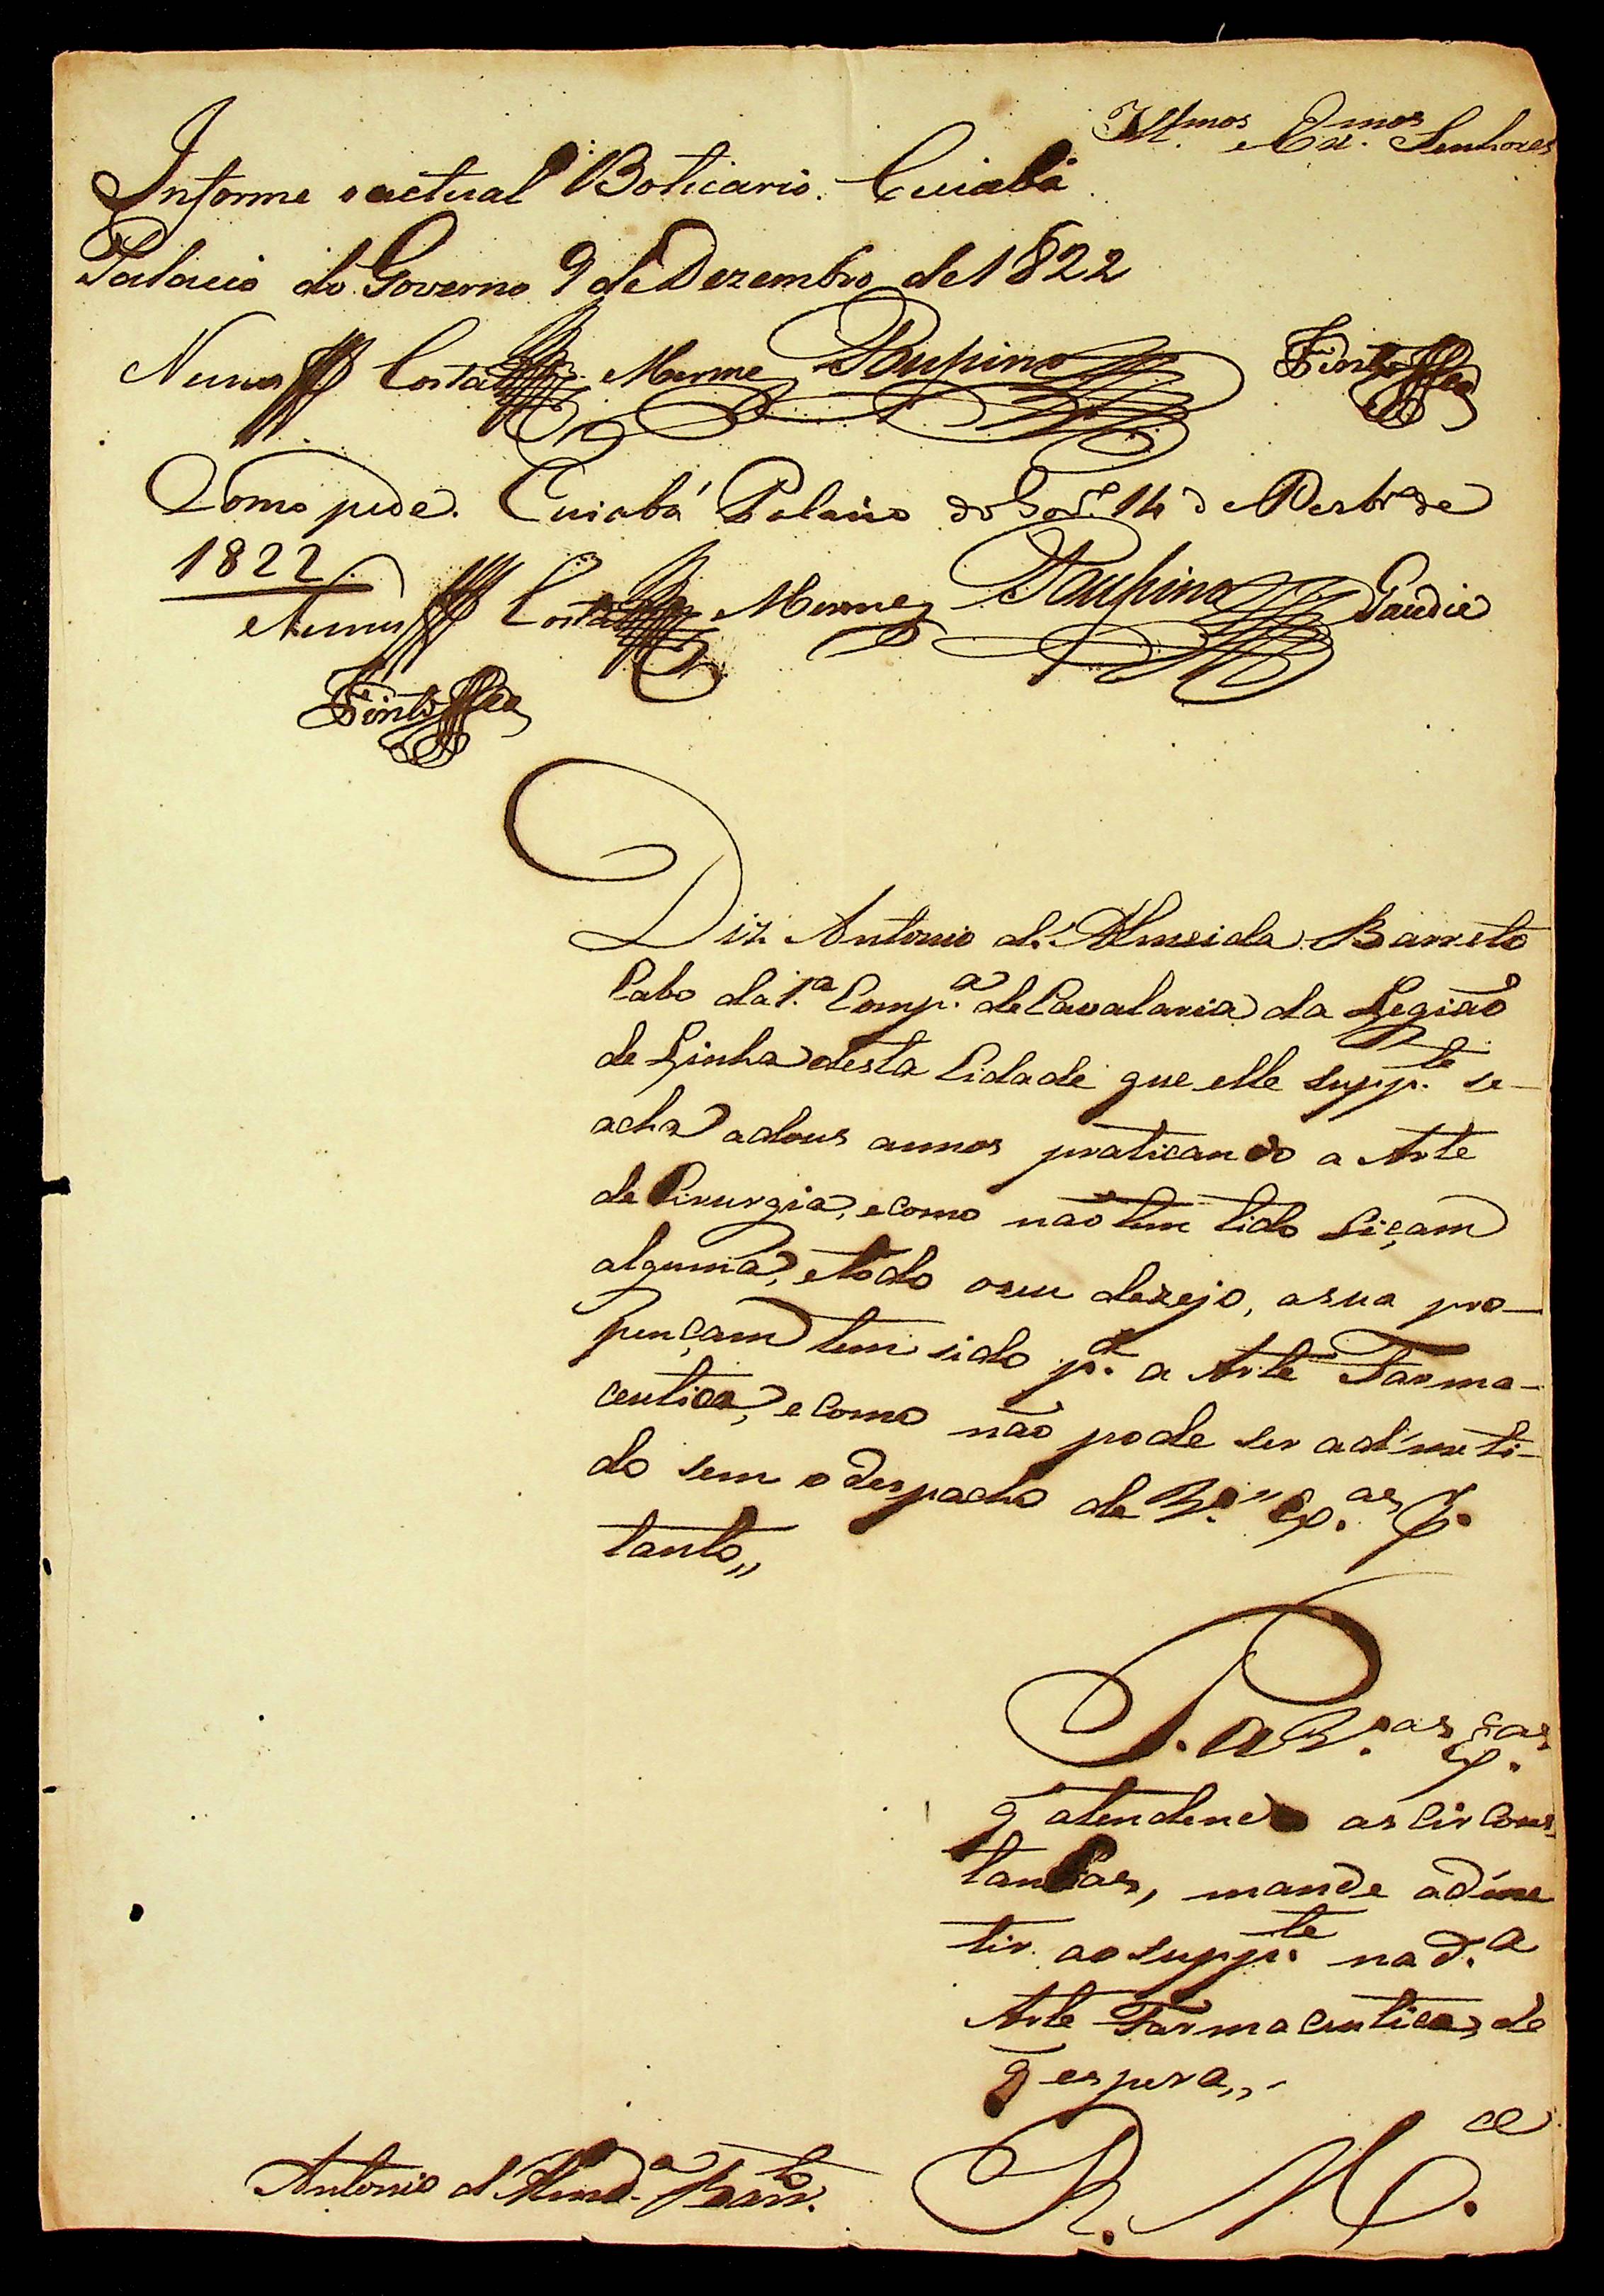 Ill.mos e Ex.mos Senhores
Informe o actual Boticario. Cuiabá
Palacio do Governo 9 de Dezembro de 1822
Nunes Costa Rupino Pinto
Como pede. Cuiabá Palacio do Gov.o 14 de Dezbr.o de
1822
Nunes Costa Rupino Gaudie
Pinto
Diz Antonio d'Almeida Barreto
Cabo da 1.a Comp.a de Cavalaria da Legiaõ
de Linha desta Cidade que elle supp.te se
acha a dous annos praticando a Arte
de Cirurgia, e como naõ tem tido liçam
alguma, e todo o seu dezejo, a sua pro-
pençam tem sido p.a a Arte Farma-
ceutica, e como naõ pode ser admeti-
do sem o despacho de V.as Ex.as P.
tanto,,
P. a V.as Ex.as
q̃ atendendo as Circons-
tancias, mande adme
tir ao supp.te na d.a
Arte Farmaceutica, de
q̃ espera,,
R. M.ce
Antonio d'Almd.a Barr.to